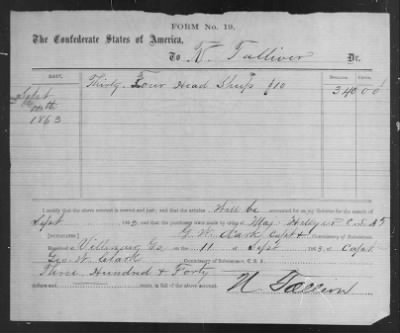 FORM No. 19.
The Confederate States of America,
To N. Talliver Dr.
DATE. DOLLARS. CTS.
Sept 10th Thirty Four Head Sheep $10 340 00
1863
I certify that the above account is correct and just; and that the articles Will be accounted for on my Return for the month of
Sept 1863, and that the purchases were made by order of Maj Hillyer C.S. A S
[DUPLICATE.] G. W. Clark Capt & Commissary of Subsistence.
Received at Villanow Ga on the 11 of Sept 1863, of Capt.
Geo. W. Clark Commissary of Subsistence, C. S. A.
Three Hundred & Forty
dollars and cents, in full of the above account.
N Talliver